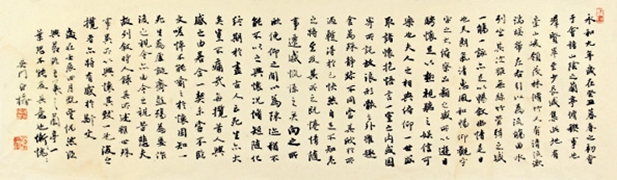 永和九年歲在癸丑暮春之初會
于會稽山陰之蘭亭脩禊事也
羣賢畢至少長咸集此地有
崇山峻領茂林脩竹又有清流激
湍暎帶左右引以為流觴曲水
列坐其次雖無絲竹管絃之盛
一觴一詠亦足以暢敘幽情是日
也天朗氣清惠風和暢仰觀宇
宙之大俯察品類之盛所以遊目
騁懷足以極視聽之娛信可
樂也夫人之相與俯仰一世或
取諸懷抱悟言一室之內或因
寄所託放浪形骸之外雖趣
舍萬殊靜躁不同當其欣於所
遇暫得於己快然自足不知老
之將至及其所之既惓情隨
事遷感慨係之矣向之所
欣俛仰之間以為陳迹猶不
能不以之興懷況脩短隨化
終期於盡古人云死生亦大
矣豈不痛哉每攬昔人興
感之由若合一契未嘗不臨
文嗟悼不能喻之於懷固知一
死生為虛誕齊彭殤為妄作
後之視今亦由今之視昔悲夫
故列敘時人錄其所述雖世殊
事異所以興懷其致一也後之
攬者亦將有感於斯文